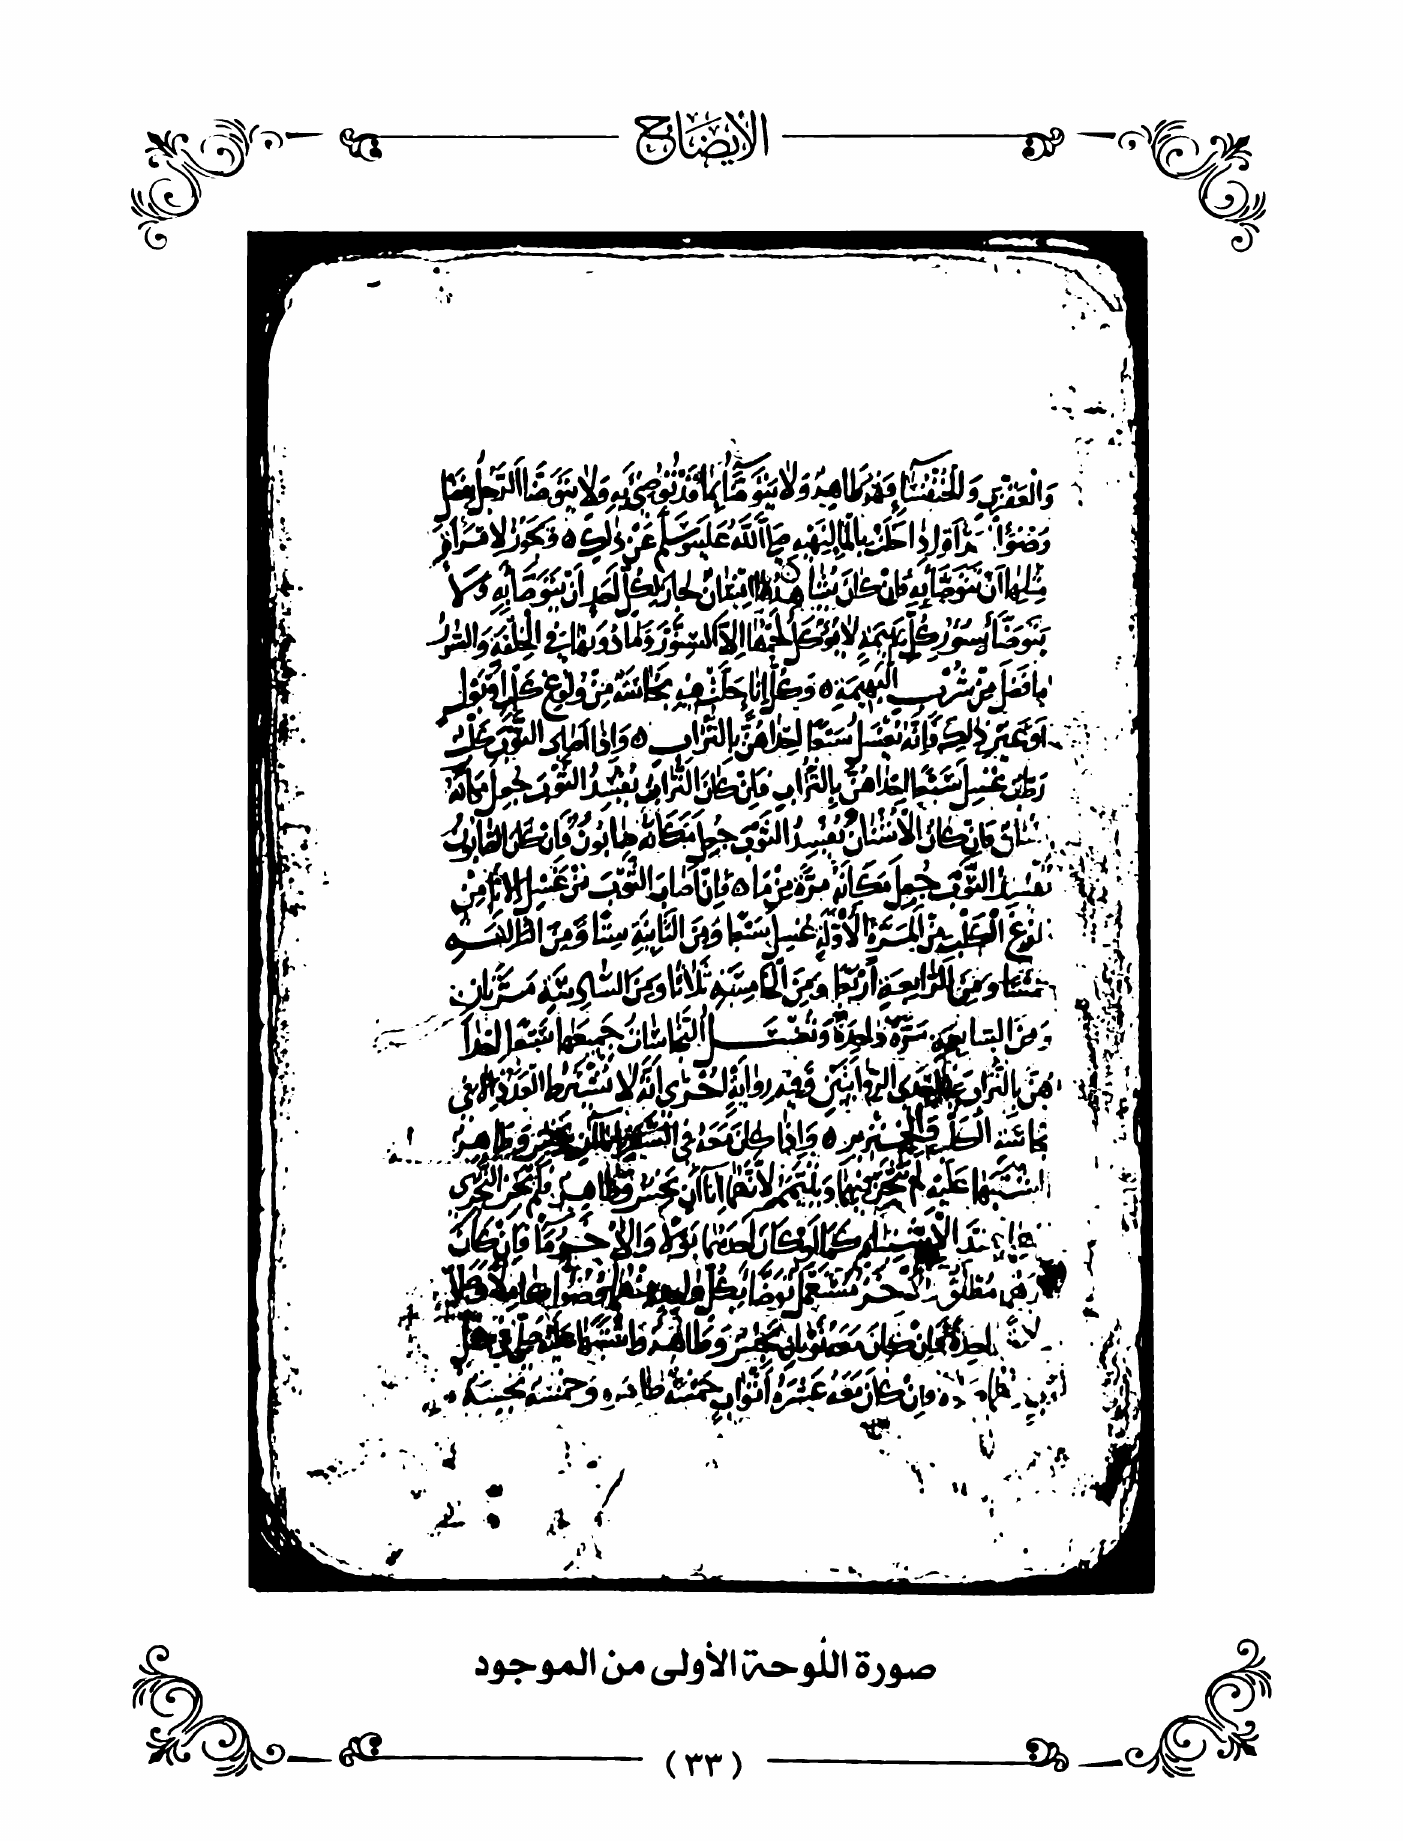 الإيضاح
والعقرب والخنفساء فهو طاهر ولا يتوضأ بما قد توضئ به ولا يتوضأ الرجل بفضل
وضوء المرأة إذا خلت بالماء لنهيه صلى الله عليه وسلم عن ذلك ويجوز لامرأة
مثلها أن تتوضأ به فإن كان نشا هذا اثنان جاز لكل أحد أن يتوضأ به ولا
يتوضأ بسؤر كل بهيمة لا يؤكل لحمها إلا السنور وما دونها في الخلقة والسؤر
ما فضل من شرب البهيمة وكل إناء حلت فيه نجاسة من ولوغ كلب أو بول
أو غير ذلك فإنه يغسل سبعا إحداهن بالتراب وإذا أصاب الثوب كلب
رطب غسل سبعا إحداهن بالتراب فإن كان التراب يفسد الثوب جعل مكانه
أشنان فإن كان الأشنان يفسد الثوب جعل مكانه صابون فإن كان الصابون
يفسد الثوب جعل مكانه مرة من ماء فإن أصاب الثوب من غسل الإناء من
ولوغ الكلب من المرة الأولة غسل ستا ومن الثانية
ومن الرابعة أربعا ومن الخامسة ثلاثا ومن السادسة مرتان
ومن السابعة مرة واحدة وتغسل النجاسات جميعها سبعا إحدا
هن بالتراب على إحدى الروايتين وفيه رواية أخرى أنه لا يشترط العدد إلا في
نجاسة الكلب والخنزير وإذا كان معه في السفر إناآن نجس وطاهر
اشتبها عليه لم يتحر فيهما ويتيمم لأنهما إناآن نجس وطاهر فلم يجز التحري
فيهما عند الاشتباه كما لو كان أحدهما بولا والآخر ماء فإن كان
مطلق والآخر مستعمل توضأ بكل واحد منهما وضوءا كاملا وصلى
صلاة واحدة فإن كان معه ثوبان نجس وطاهر واشتبها عليه صلى في كل
ثوب فإن كان معه عشرة أثواب خمسة طاهرة وخمسة نجسة
صورة اللوحة الأولى من الموجود
(٣٣)